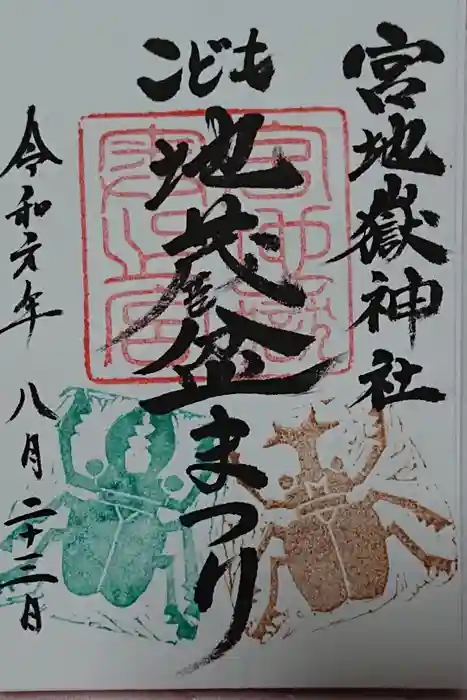 宮地嶽神社
こども
地蔵盆まつり
令和元年八月二十三日